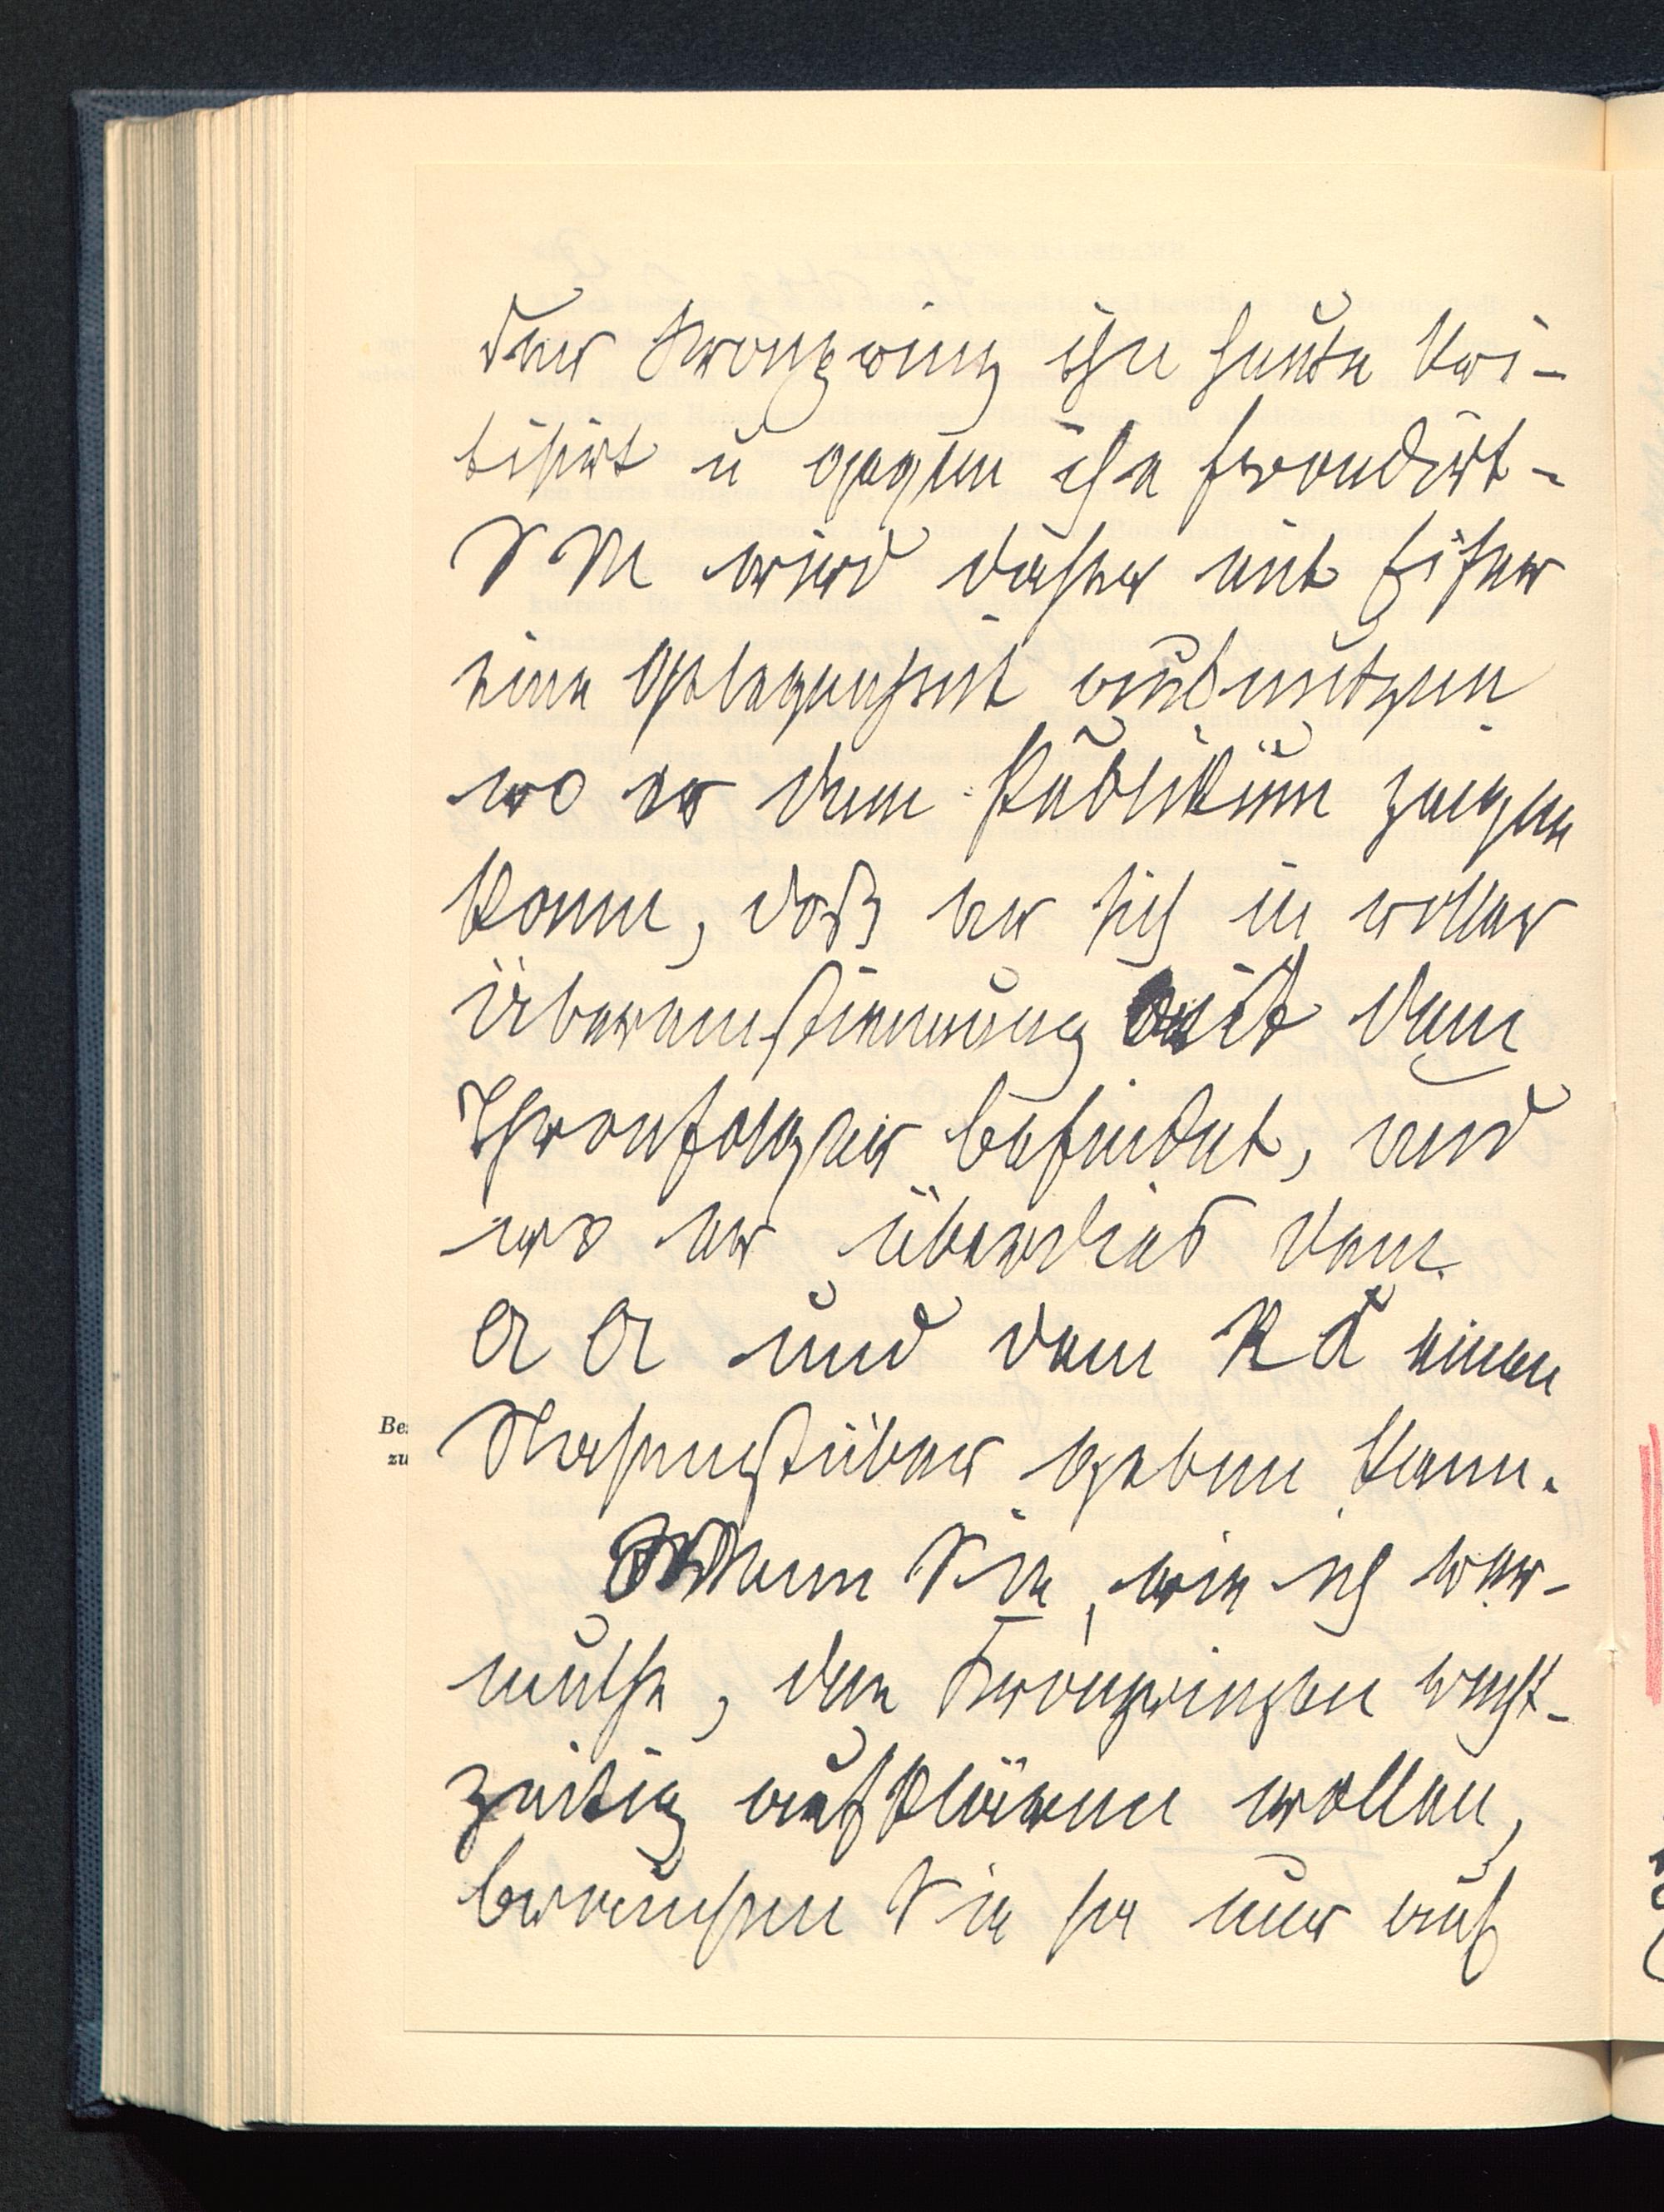 der Kronprinz ihn heute kri-
tisirt u gegen ihn frondirt -
S M wird daher mit Eifer
eine Gelegenheit ausnutzen
wo er dem Publikum zeigen
kann, daß er sich in voller
Übereinstimmung mit dem
Thronfolger befindet, und
wo er überdies dem
A A und dem R K einen
Nasenstüber geben kann.
Wenn Sie, wie ich ver-
muthe, den Kronprinzen recht-
zeitig aufklären wollen,
brauchen Sie ja nur auf
Be
zu